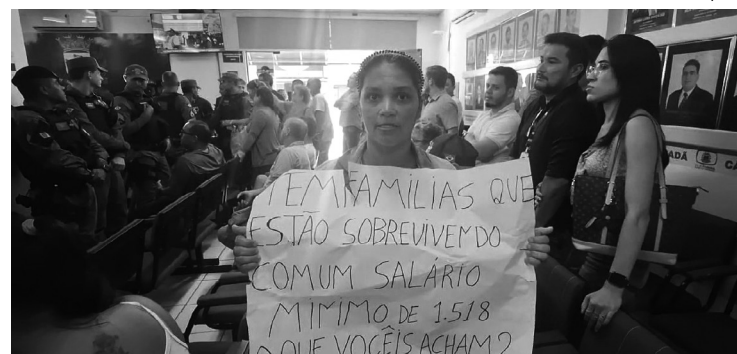 TEM FAMÍLIAS QUE
ESTÃO SOBREVIVENDO
COM UM SALÁRIO
MIMIMO DE 1.518
O QUE VOCÊIS ACHAM?
ADÁ
CA